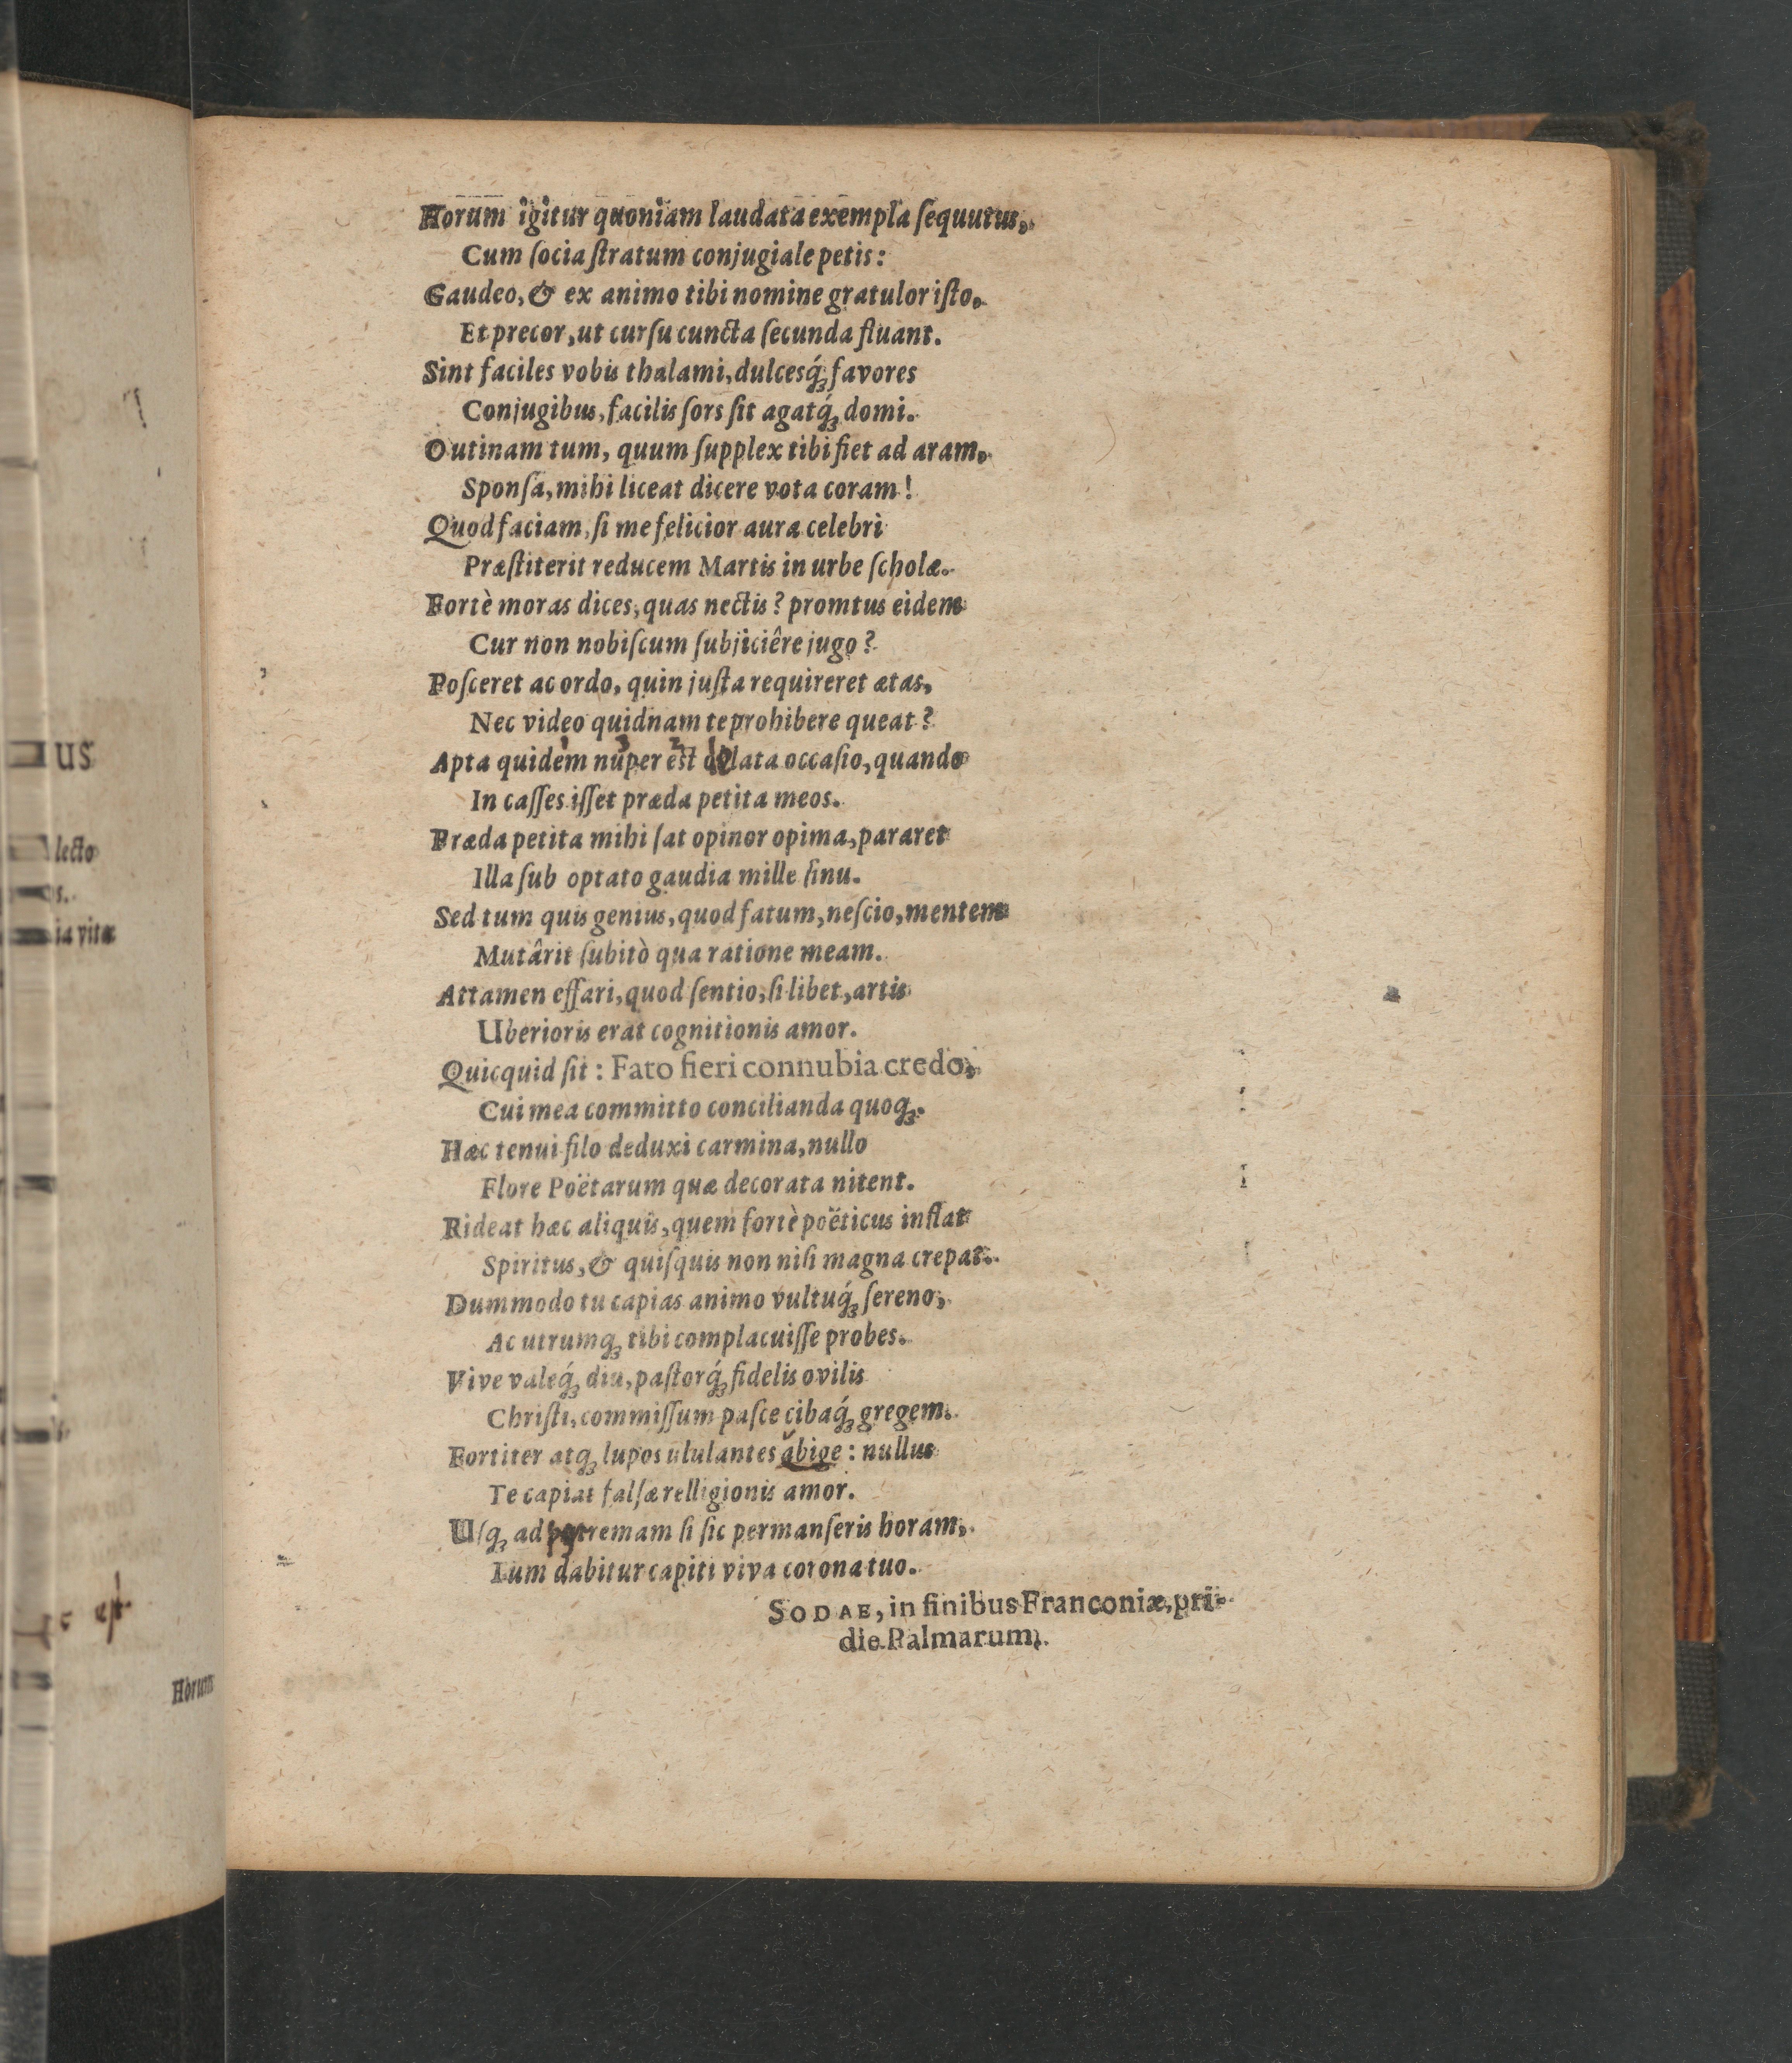 Horum igitur quoniam laudata exempla ſequutus,
Cum ſocia ſtratum conjugiale petis:
Gaudeo, & ex animo tibi nomine gratulor iſto,
Et precor, ut curſu cuncta ſecunda fluant.
Sint faciles vobis thalami, dulcesq́; favores
Conjugibus, facilis ſors ſit agatq́; domi.
O utinam tum, quum ſupplex tibi fiet ad aram,
Sponſa, mihi liceat dicere vota coram!
Quod faciam, ſi me felicior aura celebri
Præſtiterit reducem Martis in urbe ſcholæ.
Fortè moras dices, quas nectis? promtus eidem
Cur non nobiſcum ſubjiciêre jugo?
Poſceret ac ordo, quin juſta requireret ætas,
Nec video quidnam te prohibere queat?
Apta quidem nuper est oblata occaſio, quando
In caſſes iſſet præda petita meos.
Præda petita mihi ſat opinor opima, pararet
Illa ſub optato gaudia mille ſinu.
Sed tum quis genius, quod fatum, neſcio, mentem
Mutârit ſubitò qua ratione meam.
Attamen effari, quod ſentio, ſi libet, artis
Uberioris erat cognitionis amor.
Quicquid ſit: Fato fieri connubia credo,
Cui mea committo concilianda quoq;.
Hæc tenui filo deduxi carmina, nullo
Flore Poëtarum quæ decorata nitent.
Rideat hæc aliquis, quem fortè poëticus inflat
Spiritus, & quiſquis non niſi magna crepat.
Dummodo tu capias animo vultuq́; ſereno,
Ac utrumq; tibi complacuiſſe probes.
Vive valeq́; diu, paſtorq́; fidelis ovilis
Chriſti, commiſſum paſce cibaq́; gregem.
Fortiter atq; lupos ululantes abige: nullus
Te capiat falſæ relligionis amor.
Uſq; ad postremam ſi ſic permanſeris horam,
Tum dabitur capiti viva corona tuo.
SODAE, in finibus Franconiæ, pri-
die Palmarum.
us
lecto
s.
ia vitæ
Horum